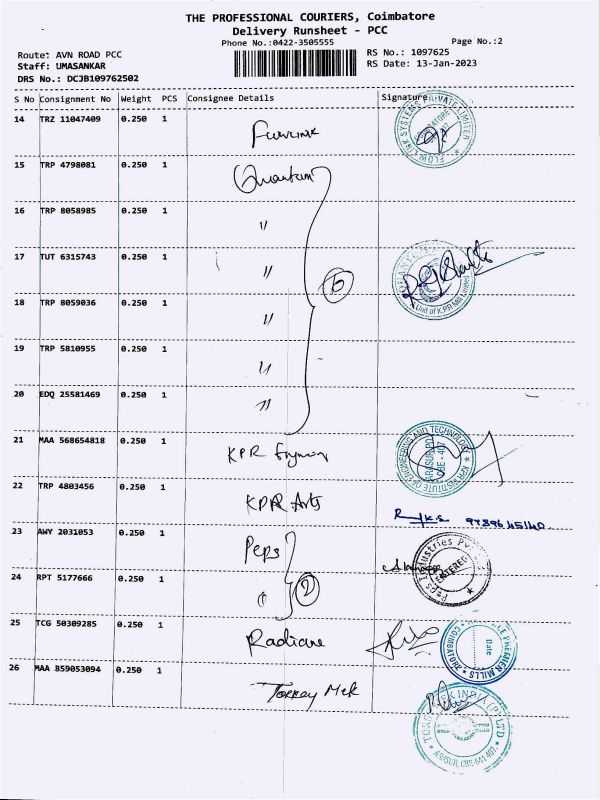 THE PROFESSIONAL COURIERS, Coimbatore
Delivery Runsheet - PCC
Phone No.:0422-3505555
Page No.:2
Route: AVN ROAD PCC
RS No.: 1097625
Staff: UMASANKAR
RS Date: 13-Jan-2023
DRS No.: DCJB109762502
S No Consignment No Weight PCS Consignee Details Signature
14 TRZ 11047409 0.250 1
FLOW LINK SYSTEMS PRIVATE LIMITED
15 TRP 4798081 0.250 1 Quantum
16 TRP 8058985 0.250 1 "
17 TUT 6315743 0.250 1 " 6
Unit of K.P.R Mill Limited
18 TRP 8059036 0.250 1 "
19 TRP 5810955 0.250 1 "
20 EDQ 25581469 0.250 1 "
21 MAA 568654818 0.250 1 KPR
KPR INSTITUTE OF ENGINEERING AND TECHNOLOGY
ARASUR PO
CBE - 407
22 TRP 4803456 0.250 1 KPR Arts
23 AWY 2031053 0.250 1 Peps
Peps Industries Pvt
ENTERED
24 RPT 5177666 0.250 1 " 2
25 TCG 50309285 0.250 1 Radiane
PREMIER MILLS
Date
26 MAA 859053094 0.250 1 Torrey Mek
INDIA (P) LTD
ARASUR, CBE-641 407.